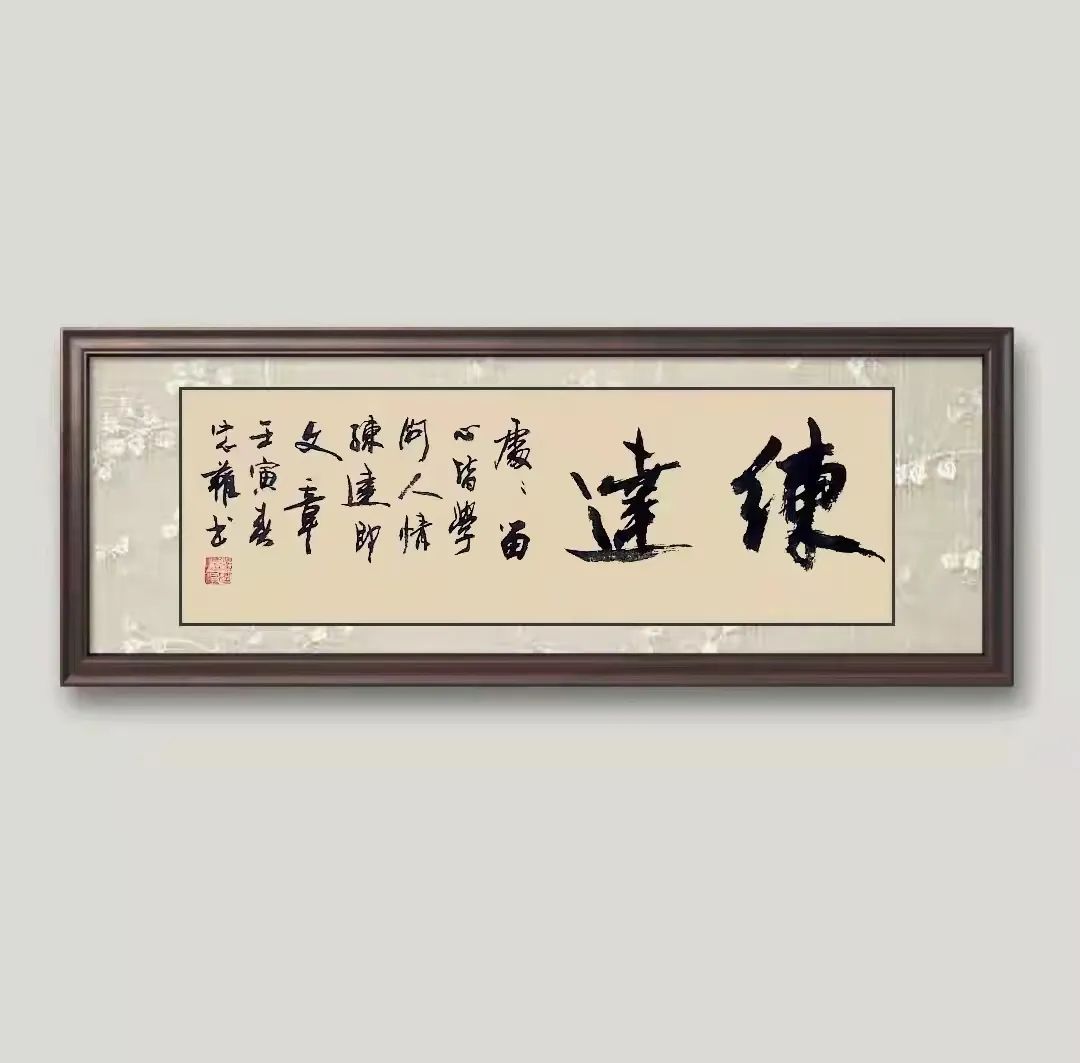 練達
處〻留
心皆學
問人情
練達即
文章
壬寅春
书